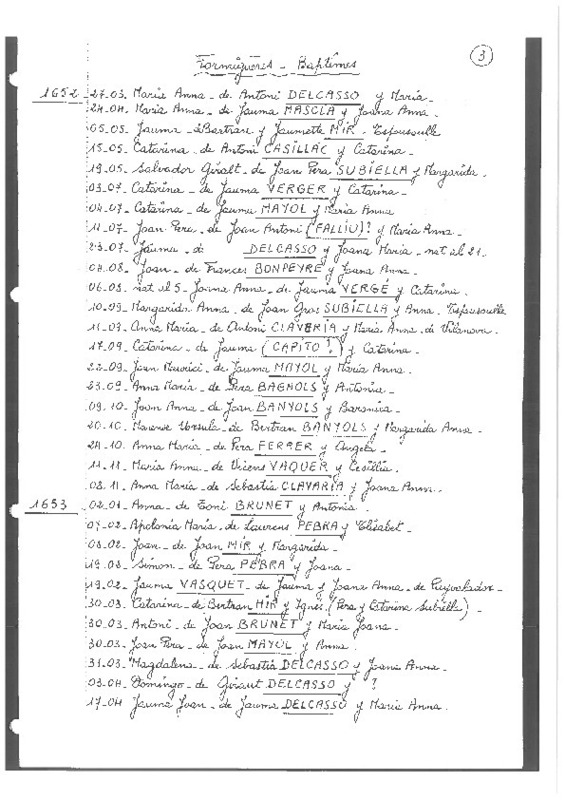 Formiguères - Baptêmes
3
1652 27-03. Maria Anna - de Antoni DELCASSO y Maria -
24-04. Maria Anna - de Jauma MASCLA y Joana Anna -
05-05. Jauma - de Bertran y Jaumette MIR. Espousolle
15-05. Catarina - de Antoni CASILLAC y Catarina -
19-05. Salvador Giralt - de Joan Pera SUBIELLA y Margarida.
03-07. Catarina - de Jauma VERGER y Catarina -
04-07. Catarina - de Jauma MAYOL y Maria Anna
11-07. Joan Pera - de Joan Antoni (FALLIU)? y Maria Anna -
23-07. Jauma - de DELCASSO y Joana Maria - nat al 21.
04-08. Joan - de Frances BONPEYRE y Joana Anna -
06-08. nat al 5 - Joana Anna - de Jauma VERGÉ y Catarina -
10-09. Margarida Anna - de Joan Gros SUBIELLA y Anna. Espousoulle
11-09. Anna Maria - de Antoni CLAVERIA y Maria Anna. de Vilanova.
17-09. Catarina - de Jauma (CAPITO?) y Catarina -
22-09. Joan Maurici - de Jauma MAYOL y Maria Anna.
23-09. Anna Maria - de Pera BAGNOLS y Antonia -
09-10. Joan Anna - de Joan BANYOLS y Baronina -
20-10. Marense Ursula - de Bertran BANYOLS y Margarida Anna -
24-10. Anna Maria - de Pera FERRER y Angela -
11-11. Maria Anna - de Vicens VAQUER y Cecillia.
08-11. Anna Maria - de Sebastia CLAVARIA y Joana Anna.
1653 02-01. Anna - de Toni BRUNET y Antonia -
07-02. Apolonia Maria - de Laurens PEBRA y Elisabet -
08-02. Joan - de Joan MIR y Margarida -
19-08. Simon - de Pera PEBRA y Joana -
19-02. Jauma VASQUET - de Jauma y Joana Anna - de Puyvalador -
30-03. Catarina - de Bertran MIR y Ignes. (Pera y Catarina Subiella) -
30-03. Antoni - de Joan BRUNET y Maria Joana -
30-03. Joan Pera - de Joan MAYOL y Anna.
31-03. Magdalena - de Sebastia DELCASSO y Joana Anna -
03-04. Domingo - de Giraut DELCASSO y ?
17-04 Jauma Joan - de Jauma DELCASSO y Maria Anna.